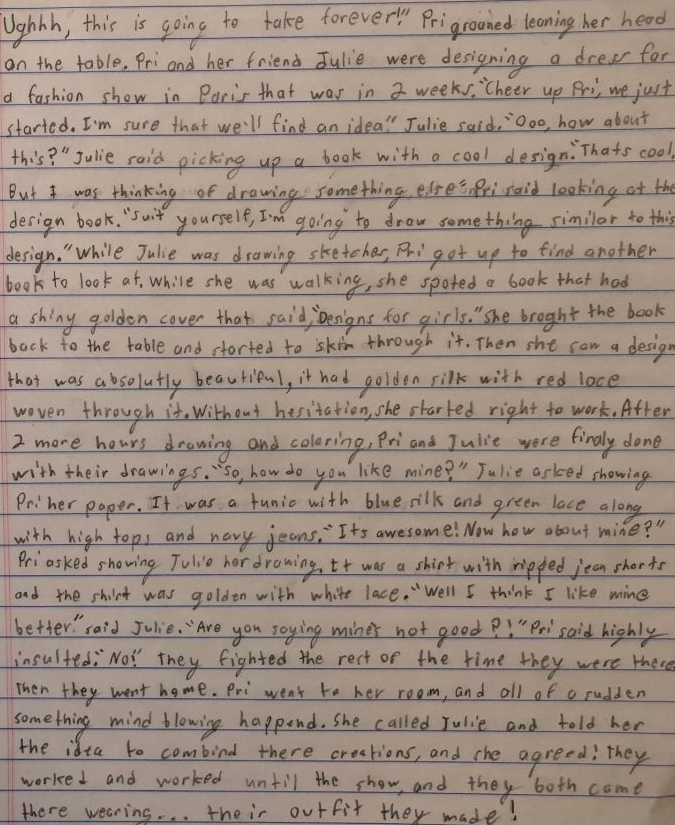 Ughhh, this is going to take forever!" Pri groaned leaning her head
on the table. Pri and her friend Julie were designing a dress for
a fashion show in Paris that was in 2 weeks. "Cheer up Pri, we just
started. I'm sure that we'll find an idea." Julie said. "Ooo, how about
this?" Julie said picking up a book with a cool design. "Thats cool,
But I was thinking of drawing something else" Pri said looking at the
design book. "Suit yourself, I'm going to draw something similar to this
design." While Julie was drawing sketches, Pri got up to find another
book to look at. While she was walking, she spoted a book that had
a shiny golden cover that said, "Designs for girls." She broght the book
back to the table and started to skim through it. Then she saw a design
that was absolutly beautiful, it had golden silk with red lace
woven through it. Without hesitation, she started right to work. After
2 more hours drawing and coloring, Pri and Julie were finaly done
with their drawings. "So, how do you like mine?" Julie asked showing
Pri her paper. It was a tunic with blue silk and green lace along
with high tops and navy jeans. "Its awesome! Now how about mine?"
Pri asked showing Julie her drawing. It was a shirt with ripped jean shorts
and the shirt was golden with white lace. "Well I think I like mine
better." said Julie. "Are you saying mine's not good?!" Pri said highly
insulted. "No!" They fighted the rest of the time they were there
Then they went home. Pri went to her room, and all of a sudden
something mind blowing happend. She called Julie and told her
the idea to combind there creations, and she agreed! They
worked and worked until the show, and they both came
there wearing... their outfit they made!